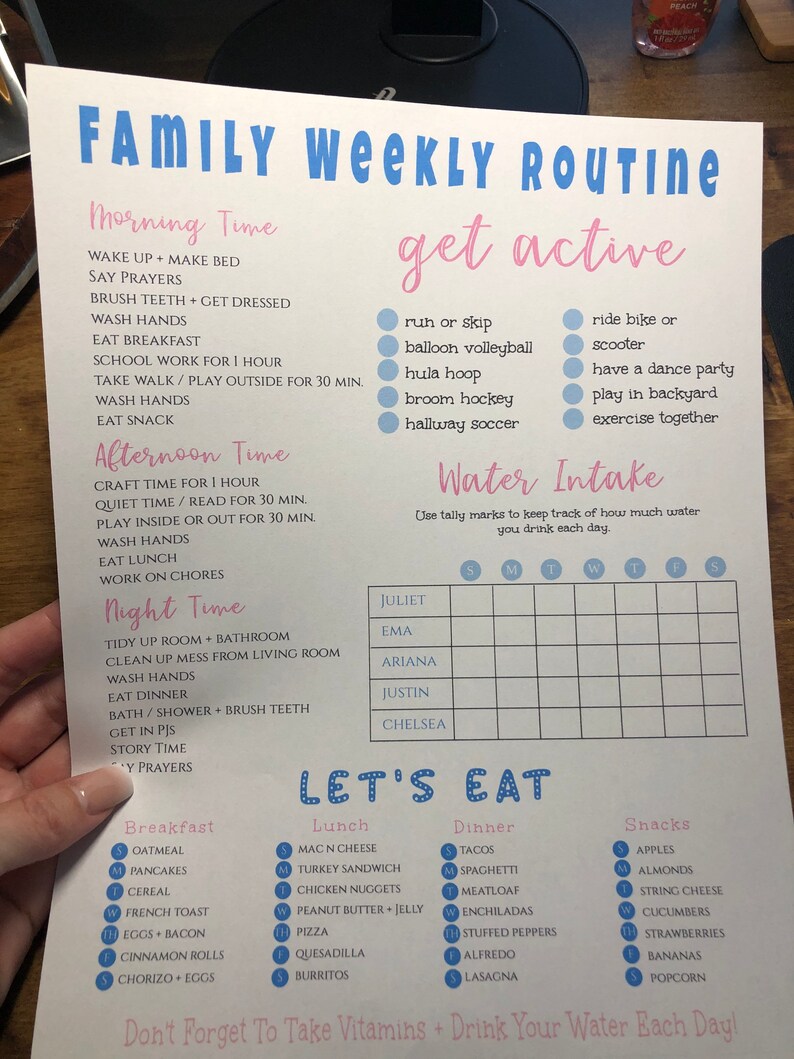 PEACH
1 fl oz / 29 mL
FAMILY WEEKLY ROUTINE
Morning Time
WAKE UP + MAKE BED
SAY PRAYERS
BRUSH TEETH + GET DRESSED
WASH HANDS
EAT BREAKFAST
SCHOOL WORK FOR 1 HOUR
TAKE WALK / PLAY OUTSIDE FOR 30 MIN.
WASH HANDS
EAT SNACK
Afternoon Time
CRAFT TIME FOR 1 HOUR
QUIET TIME / READ FOR 30 MIN.
PLAY INSIDE OR OUT FOR 30 MIN.
WASH HANDS
EAT LUNCH
WORK ON CHORES
Night Time
TIDY UP ROOM + BATHROOM
CLEAN UP MESS FROM LIVING ROOM
WASH HANDS
EAT DINNER
BATH / SHOWER + BRUSH TEETH
GET IN PJS
STORY TIME
SAY PRAYERS
get active
run or skip
balloon volleyball
hula hoop
broom hockey
hallway soccer
ride bike or
scooter
have a dance party
play in backyard
exercise together
Water Intake
Use tally marks to keep track of how much water
you drink each day.
S M T W T F S
JULIET
EMA
ARIANA
JUSTIN
CHELSEA
LET'S EAT
Breakfast
S OATMEAL
M PANCAKES
T CEREAL
W FRENCH TOAST
TH EGGS + BACON
F CINNAMON ROLLS
S CHORIZO + EGGS
Lunch
S MAC N CHEESE
M TURKEY SANDWICH
T CHICKEN NUGGETS
W PEANUT BUTTER + JELLY
TH PIZZA
F QUESADILLA
S BURRITOS
Dinner
S TACOS
M SPAGHETTI
T MEATLOAF
W ENCHILADAS
TH STUFFED PEPPERS
F ALFREDO
S LASAGNA
Snacks
S APPLES
M ALMONDS
T STRING CHEESE
W CUCUMBERS
TH STRAWBERRIES
F BANANAS
S POPCORN
Don't Forget To Take Vitamins + Drink Your Water Each Day!